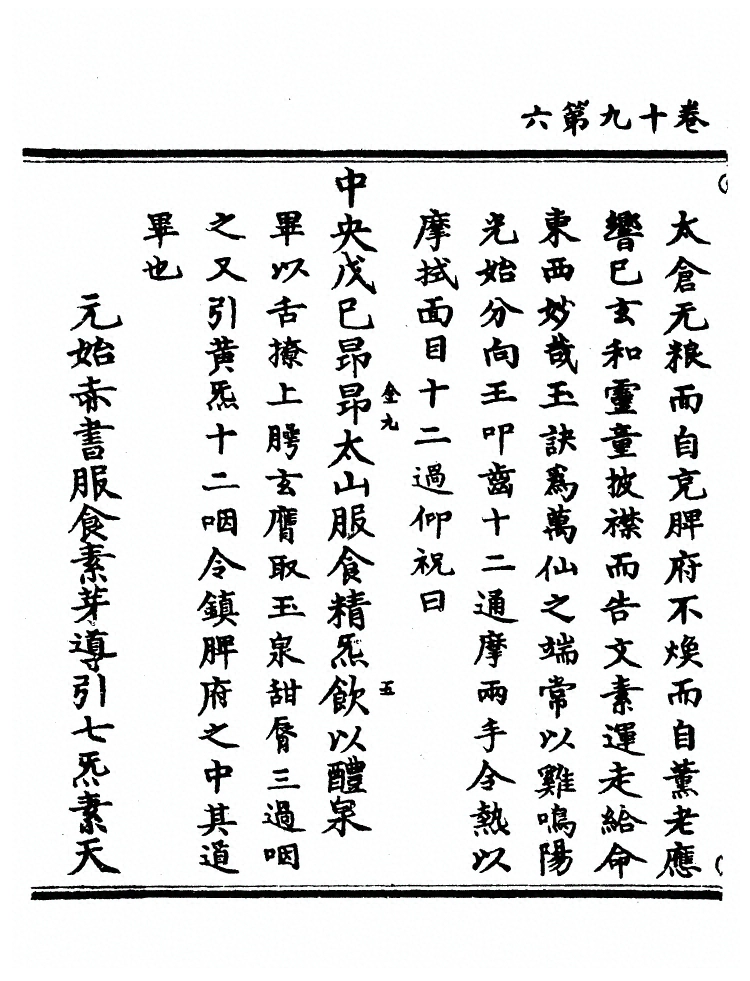 卷十九第六
太倉无粮而自充脾府不煥而自薰老應
響巳玄和靈童披襟而告文素運走給命
東西妙哉玉訣爲萬仙之端常以雞鳴陽
光始分向王叩齒十二通摩兩手令熱以
摩拭面目十二過仰祝曰
中央戊巳昂昂太山服食精炁飲以醴泉
全九
五
畢以舌撩上腭玄膺取玉泉甜脣三過咽
之又引黃炁十二咽令鎮脾府之中其道
畢也
元始赤書服食素芽導引七炁素天